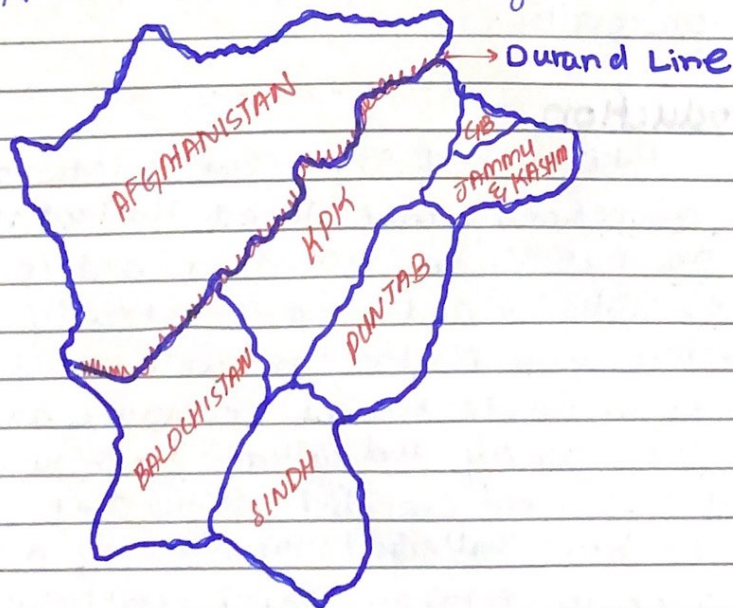 Durand Line
AFGHANISTAN
GB
JAMMU
& KASHM
KPK
PUNJAB
BALOCHISTAN
SINDH